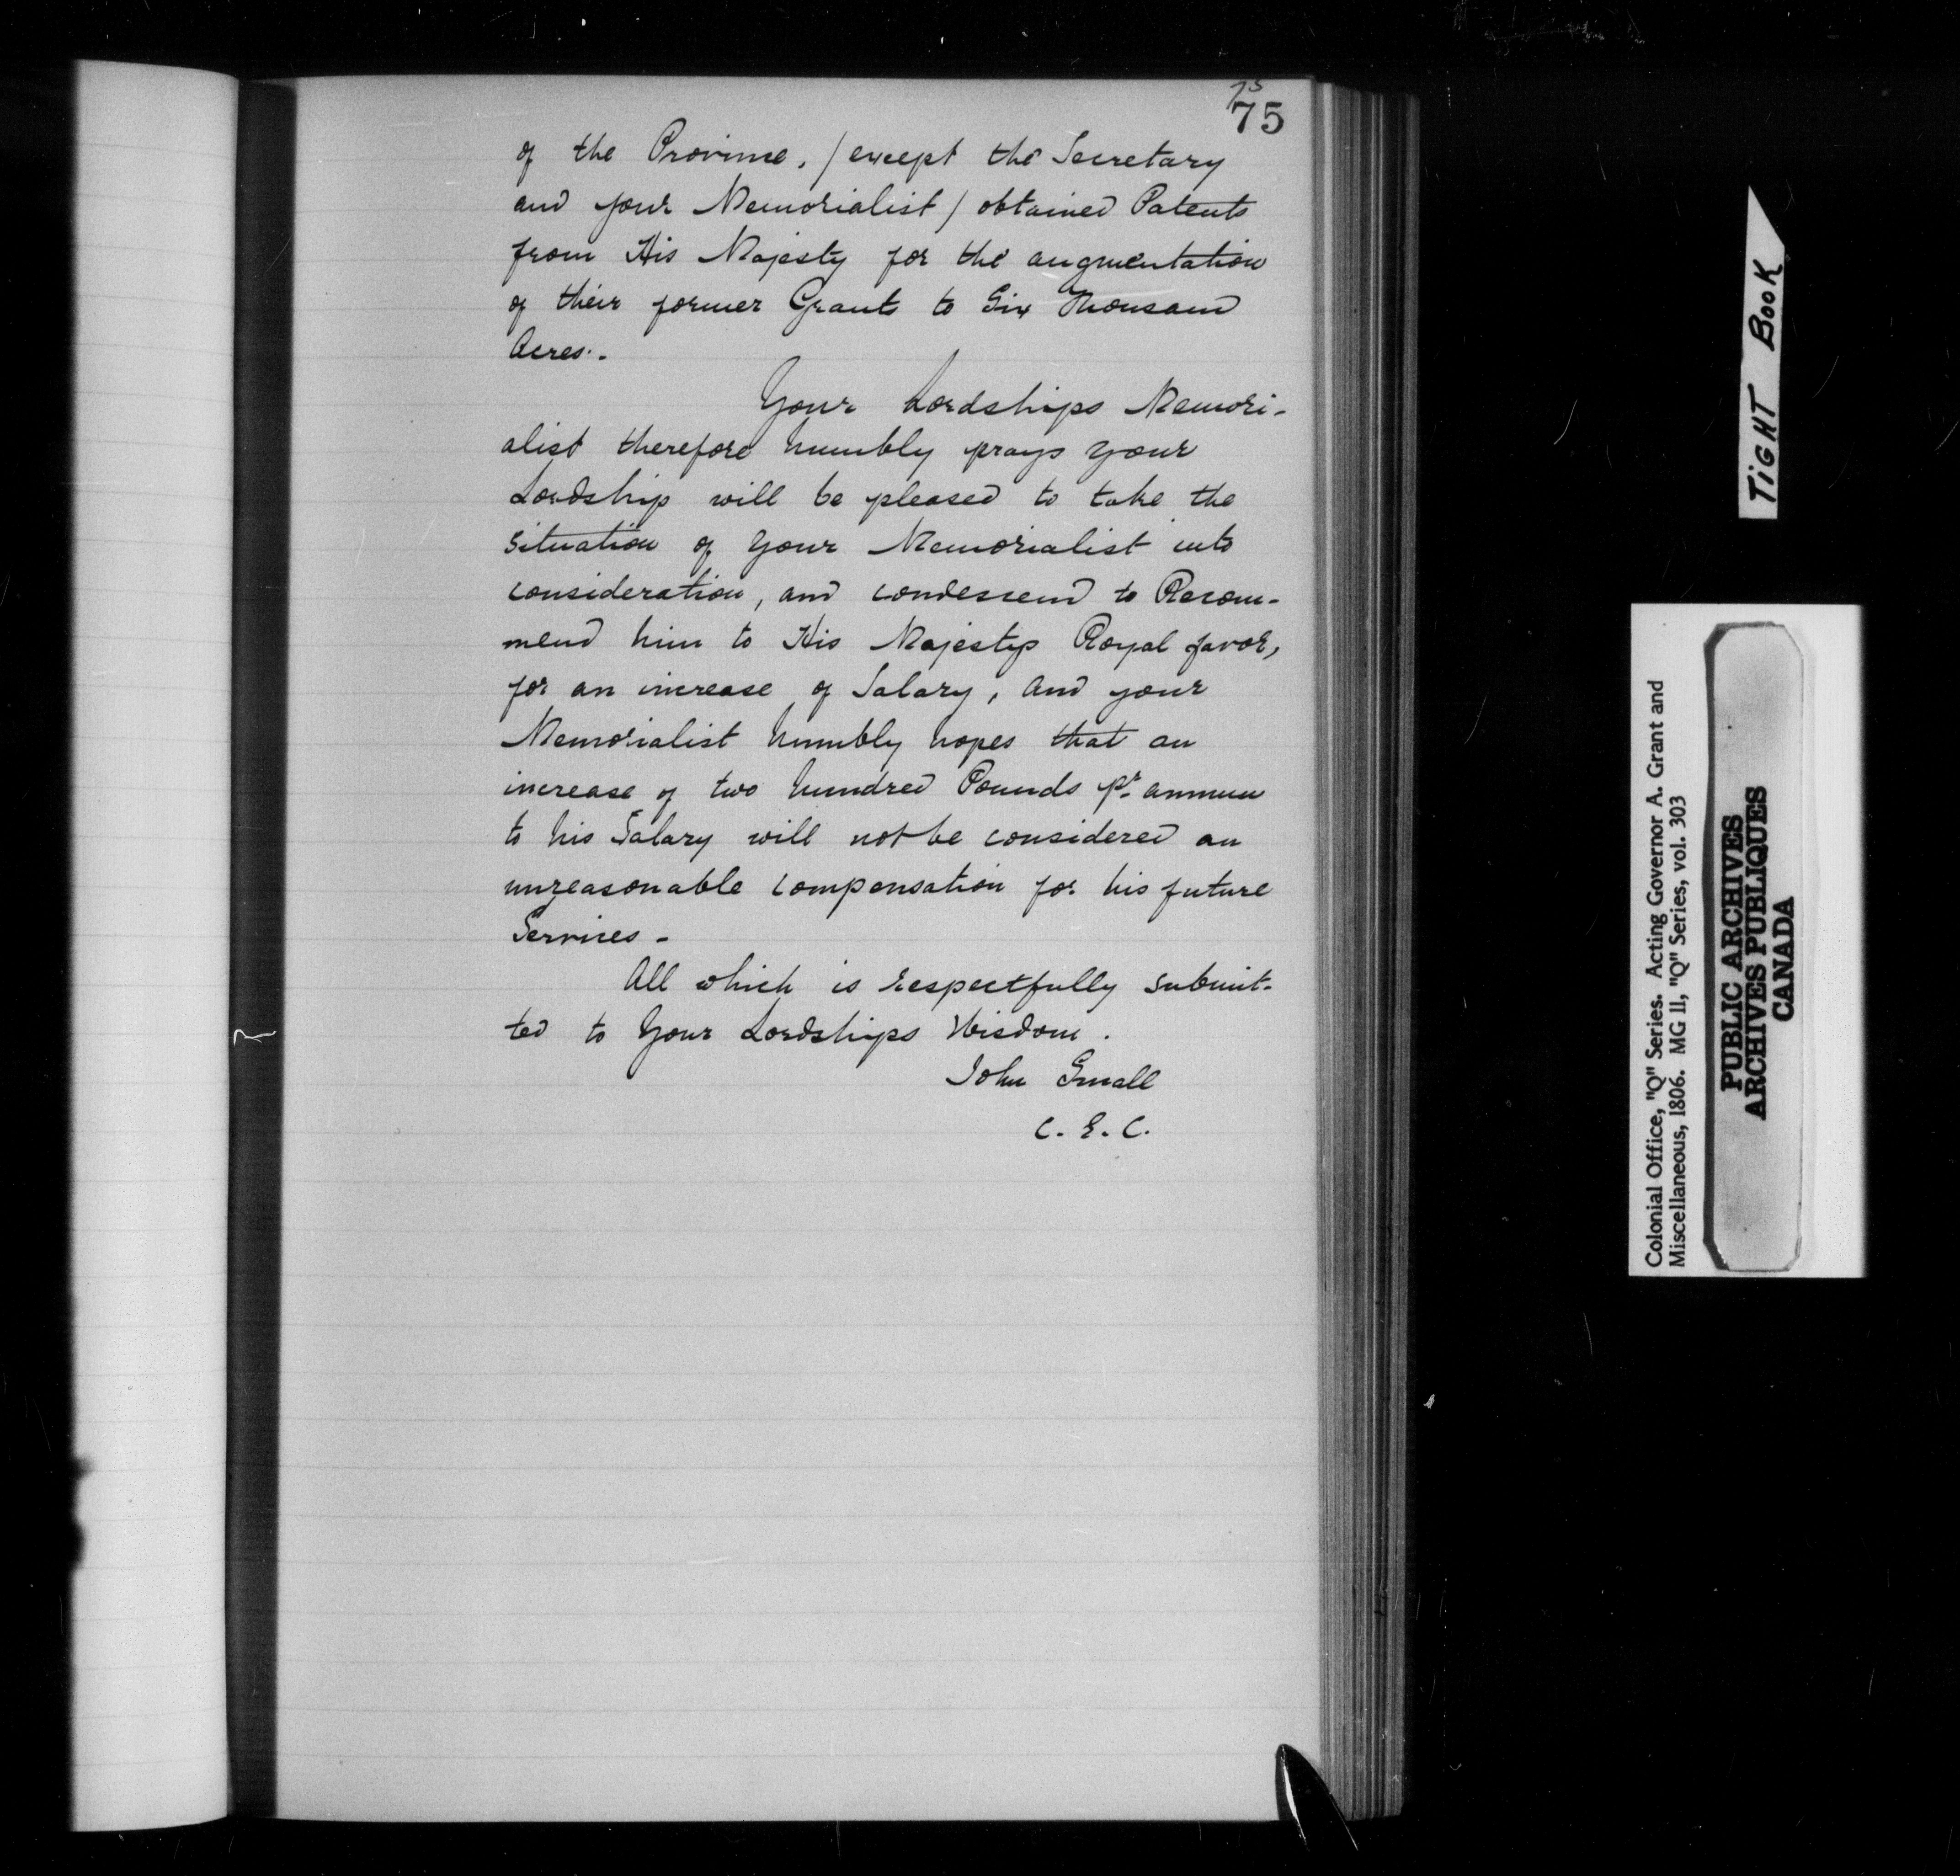 75
75
of the Province. / except the Secretary
and your Memorialist / obtained Patents
from His Majesty for the augmentation
of their former Grants to Six Thousand
Acres.-
Your Lordships Memori-
alist therefore humbly prays your
Lordship will be pleased to take the
situation of your Memorialist into
consideration, and condescend to Recom-
mend him to His Majestys Royal favor,
for an increase of Salary, and your
Memorialist humbly hopes that an
increase of two hundred Pounds pr. annum
to his Salary will not be considered an
unreasonable compensation for his future
Services -
All which is respectfully submit-
ted to Your Lordships Wisdom.
John Small
C. E. C.
TIGHT BOOK
Colonial Office, "Q" Series. Acting Governor A. Grant and
Miscellaneous, 1806. MG 11, "Q" Series, vol. 303
PUBLIC ARCHIVES
ARCHIVES PUBLIQUES
CANADA